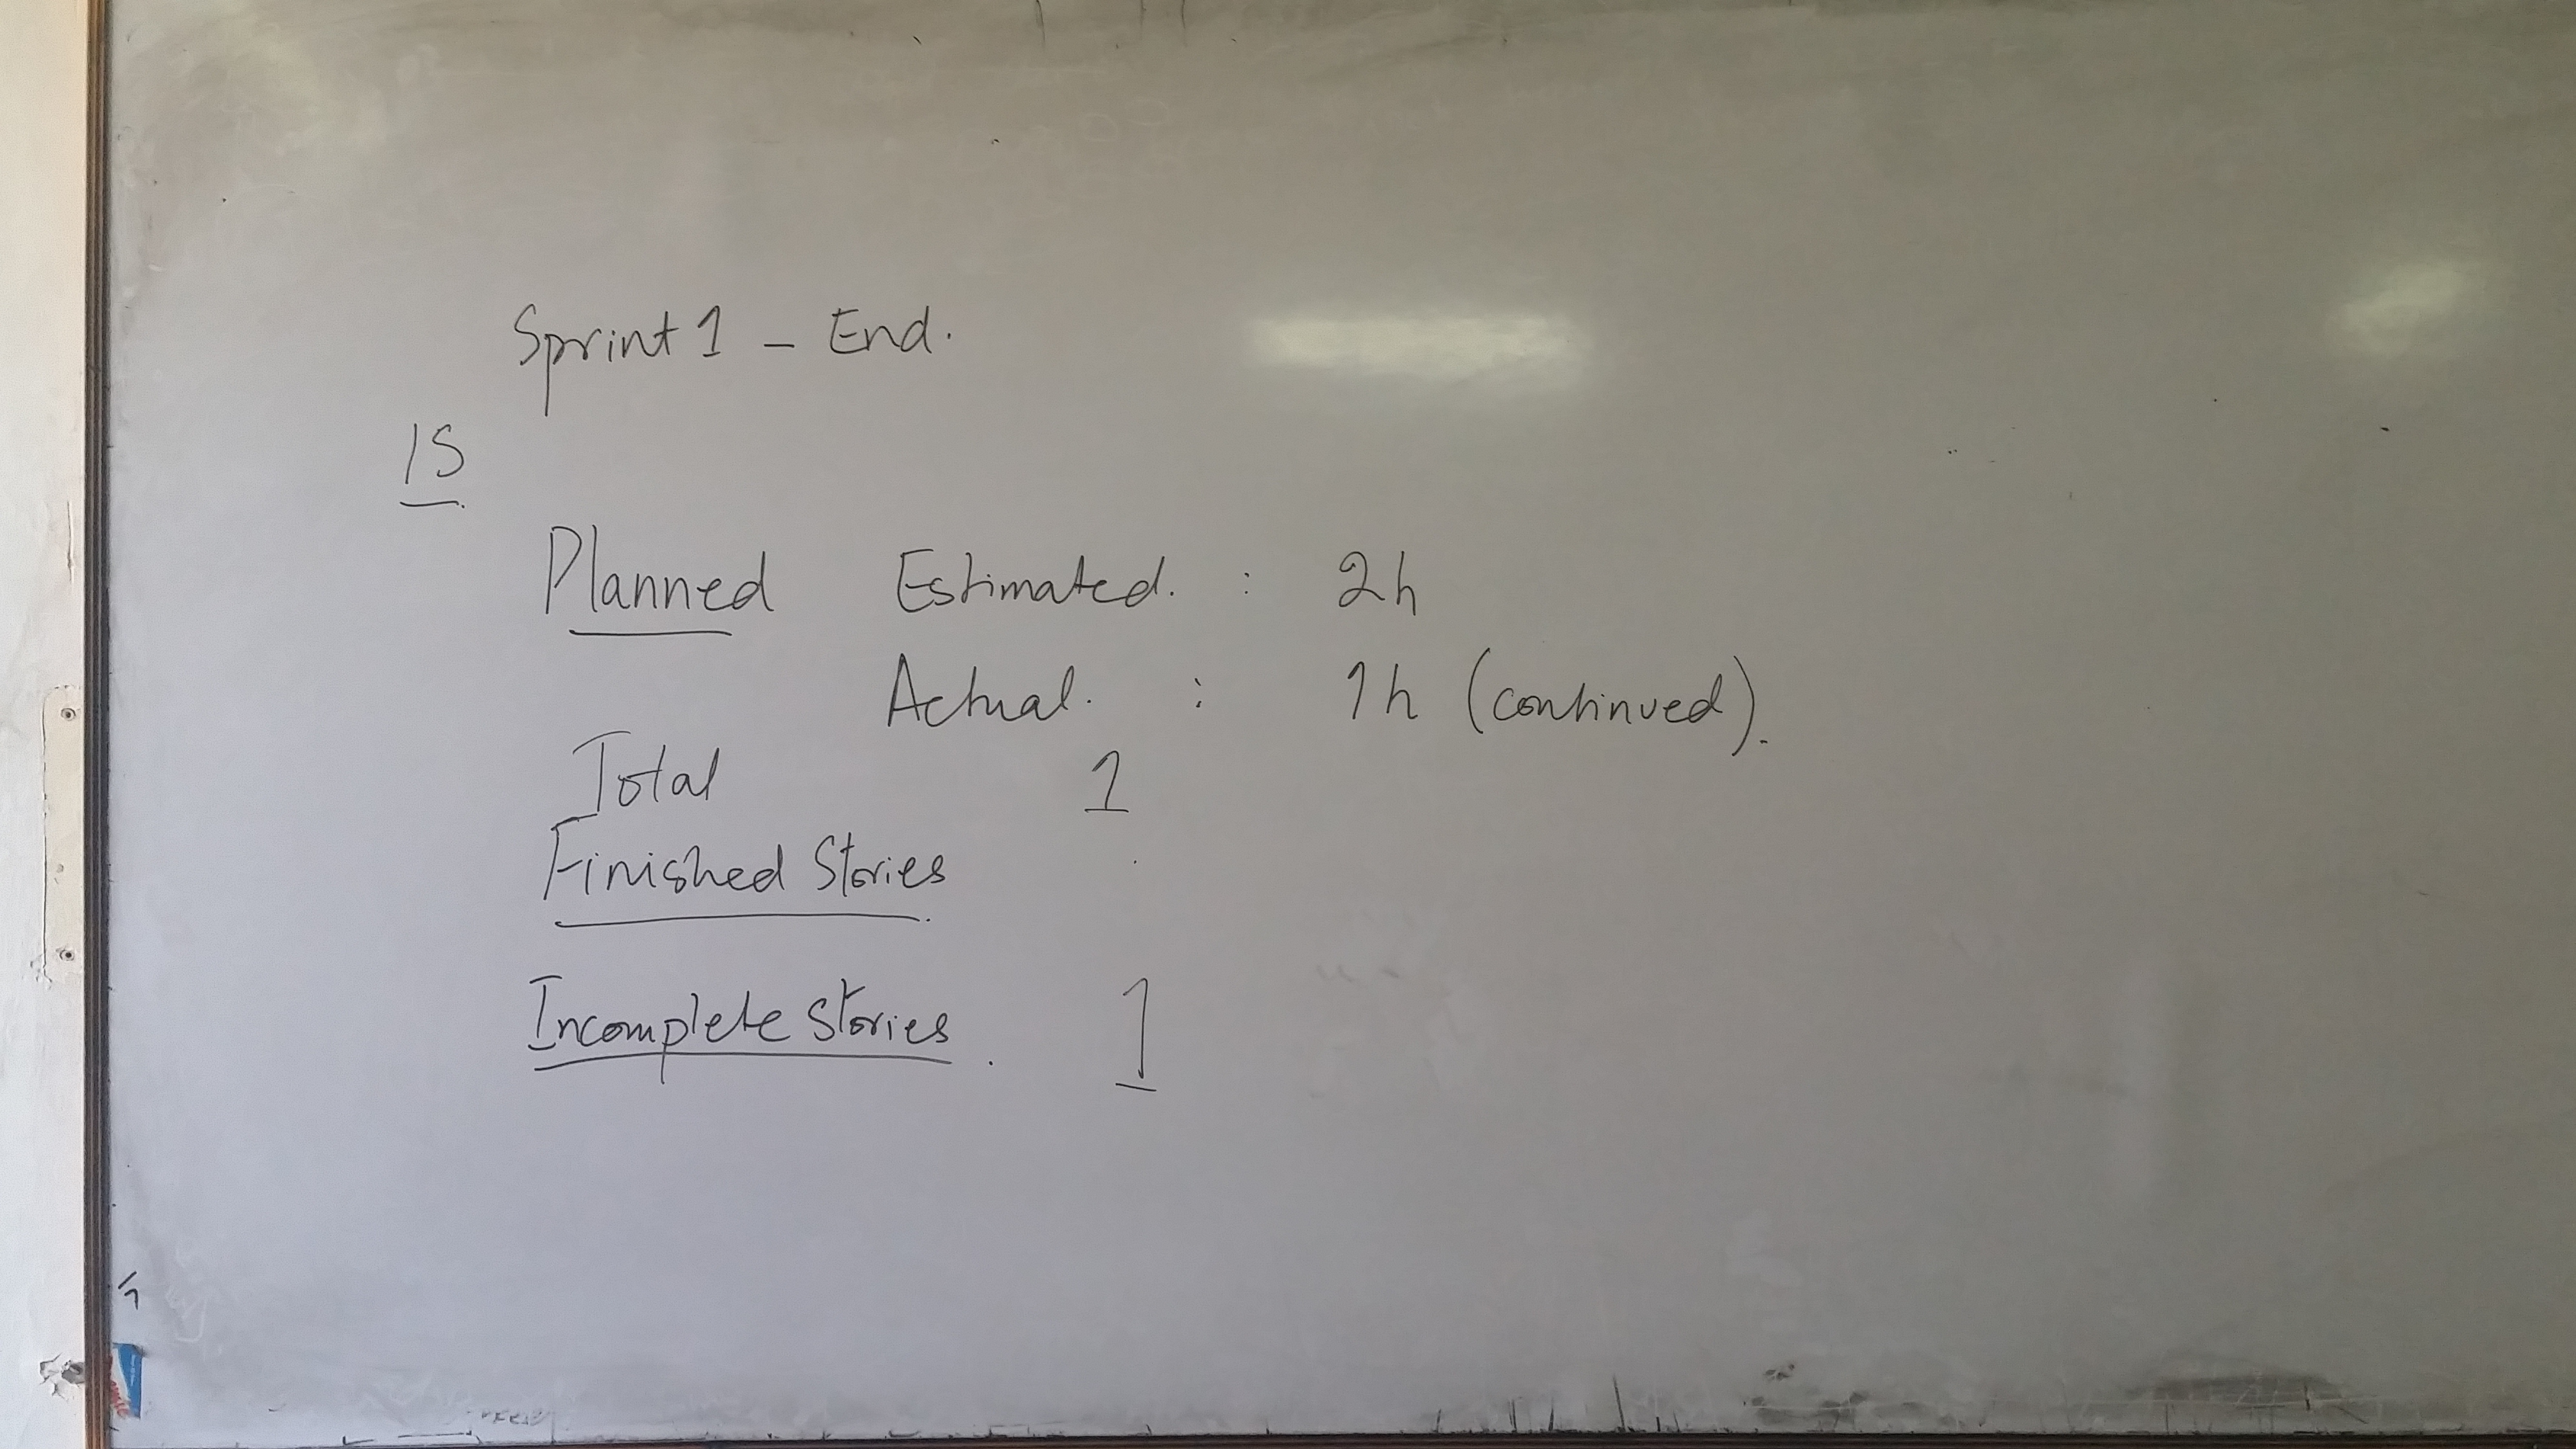 Sprint 1 - End.
IS
Planned Estimated. : 2h
Actual. : 1h (continued).
Total 1
Finished Stories
Incomplete Stories. 1